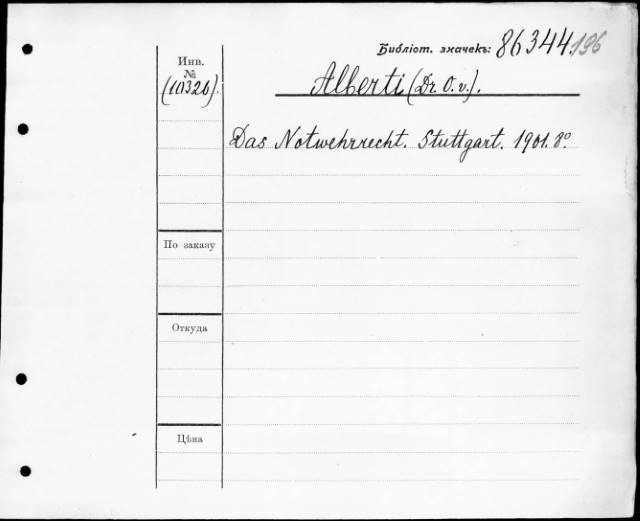 Библіот. значекъ: 86344.196
Инв. №
(10326).
Alberti (Dr. O. v.).
Das Notwehrrecht. Stuttgart. 1901. 8º.
По заказу
Откуда
Цѣна